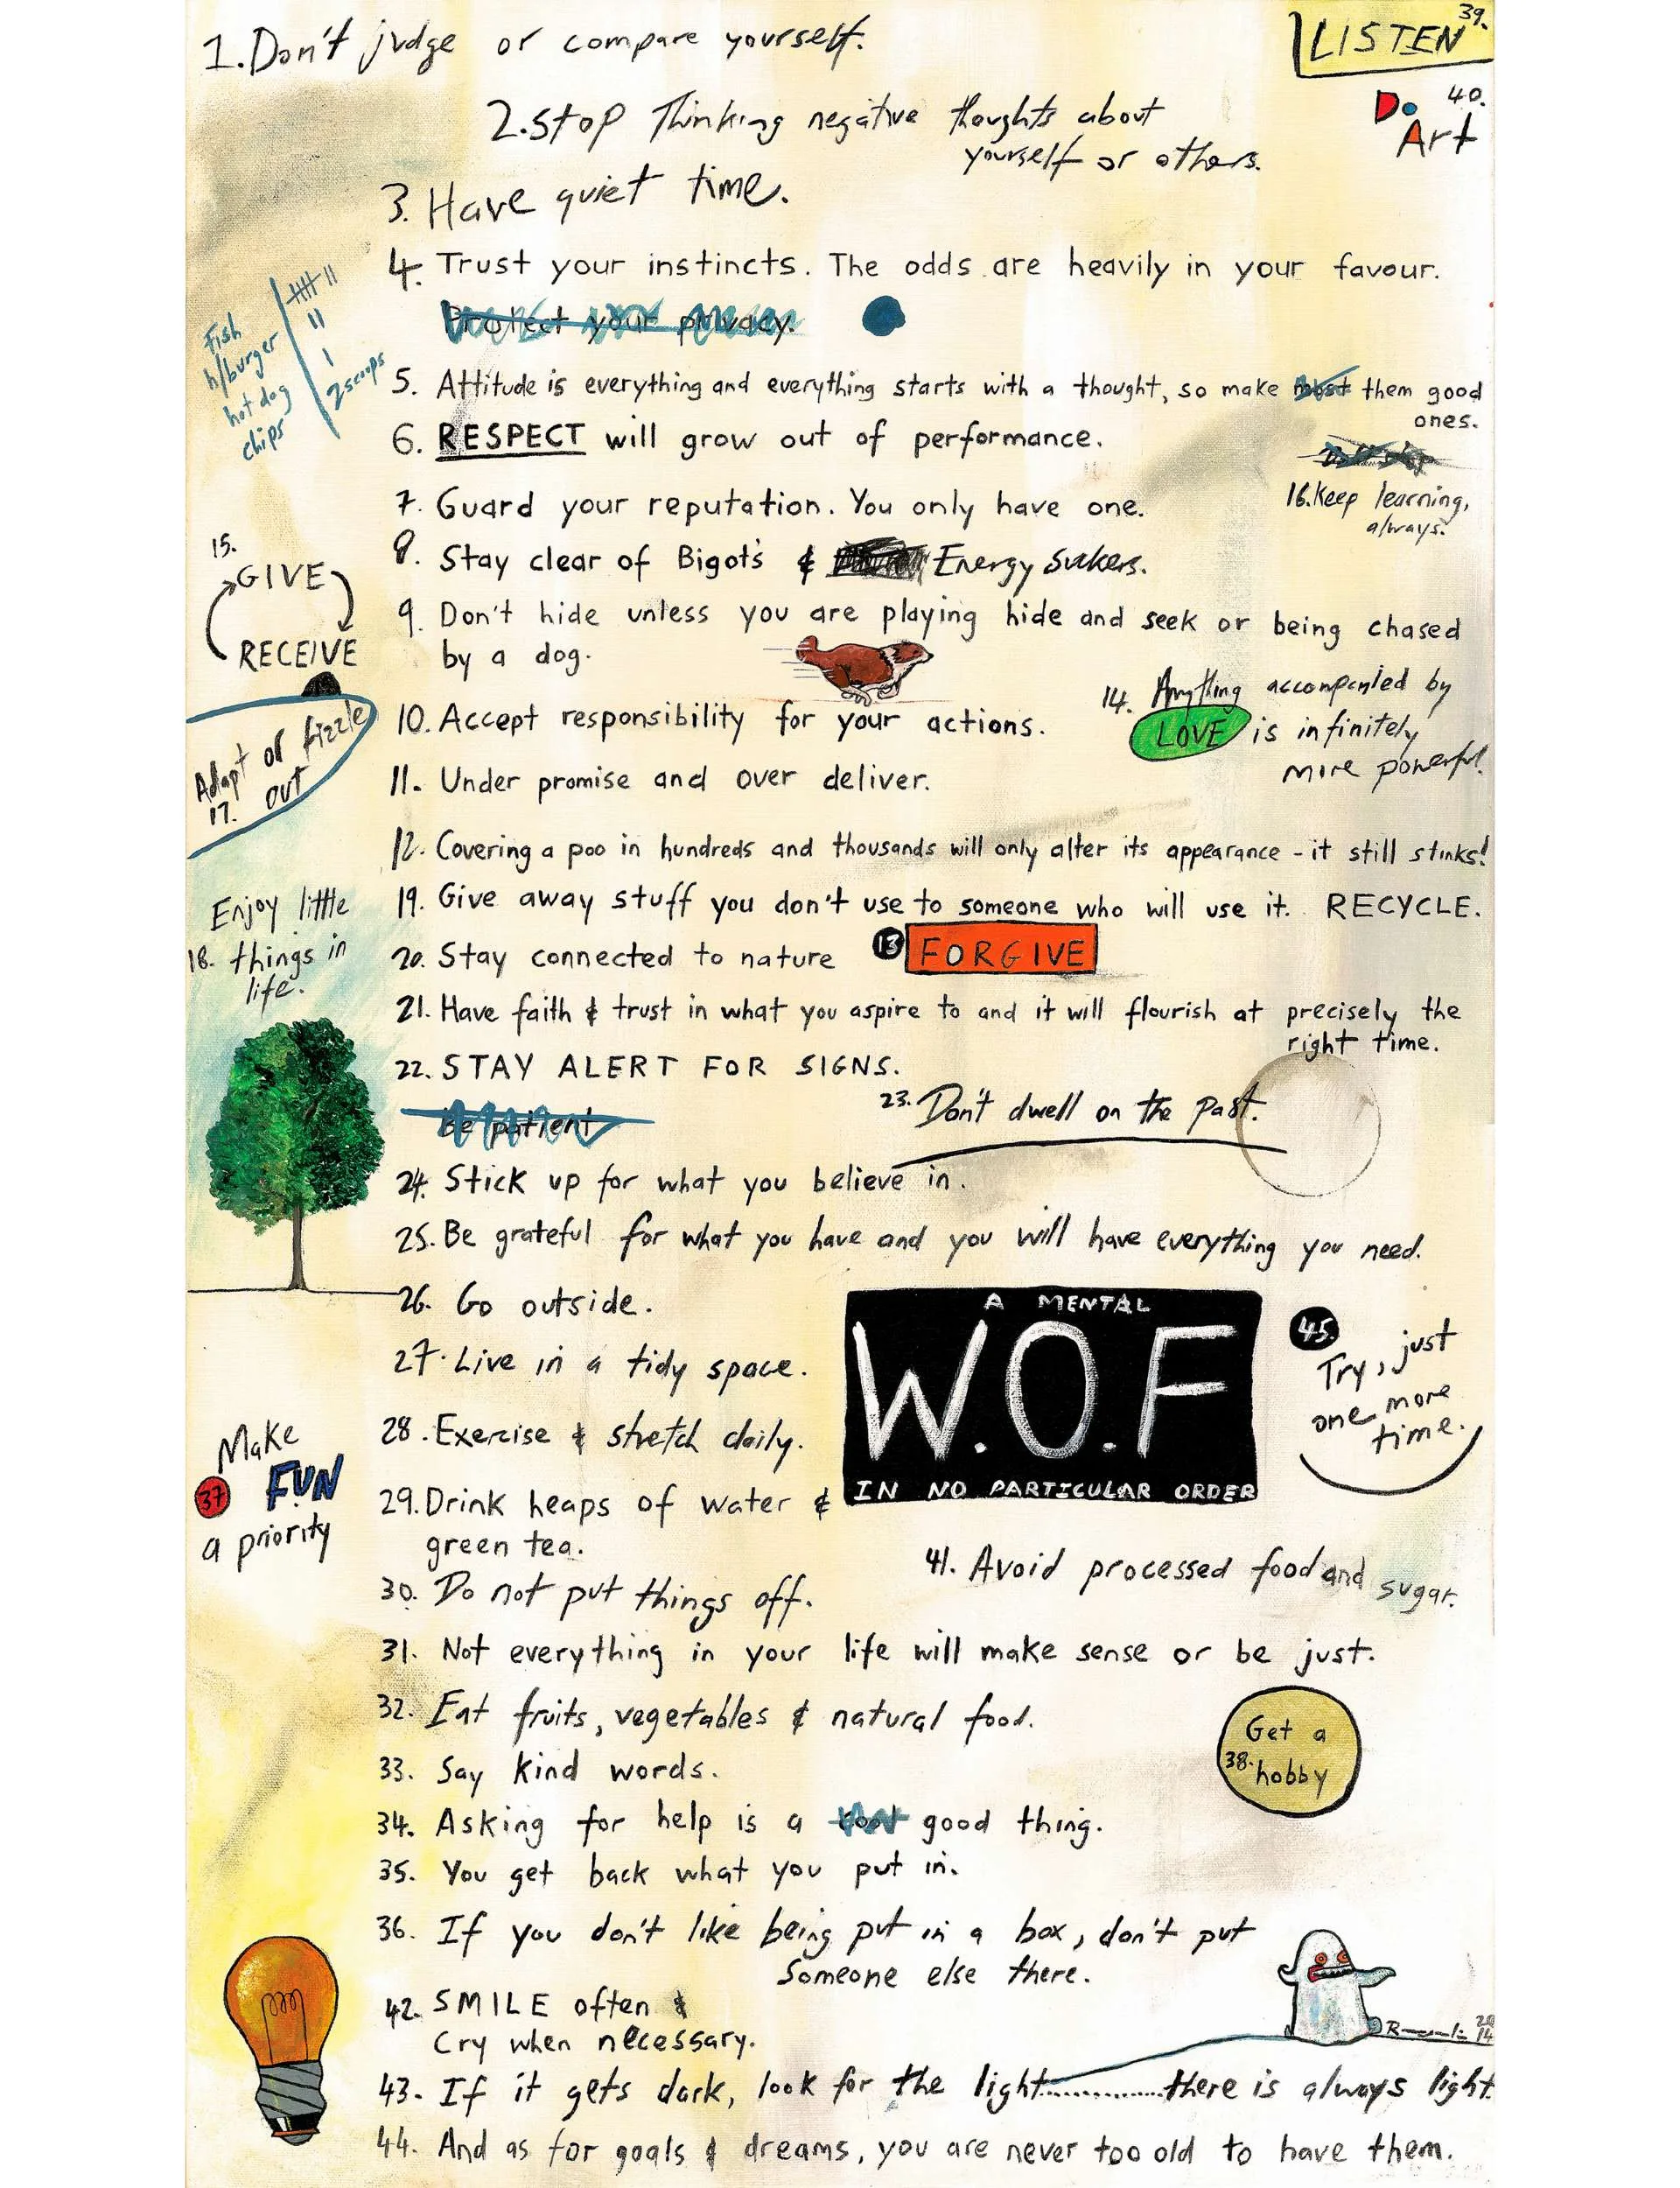 1. Don't judge or compare yourself.
LISTEN 39.
2. Stop Thinking negative thoughts about
yourself or others.
Do 40.
Art
3. Have quiet time.
4. Trust your instincts. The odds are heavily in your favour.
Protect your privacy.
Fish
h/burger
hot dog
chips
2 scoops
5. Attitude is everything and everything starts with a thought, so make most them good
ones.
6. RESPECT will grow out of performance.
7. Guard your reputation. You only have one.
16. Keep learning,
always.
8. Stay clear of Bigots & Energy Suckers.
15.
GIVE
RECEIVE
9. Don't hide unless you are playing hide and seek or being chased
by a dog.
10. Accept responsibility for your actions.
14. Anything accompanied by
LOVE is infinitely
more powerful.
Adapt or fizzle
17. out
11. Under promise and over deliver.
12. Covering a poo in hundreds and thousands will only alter its appearance - it still stinks!
Enjoy little
18. things in
life.
19. Give away stuff you don't use to someone who will use it. RECYCLE.
20. Stay connected to nature
13 FORGIVE
21. Have faith & trust in what you aspire to and it will flourish at precisely the
right time.
22. STAY ALERT FOR SIGNS.
Be patient
23. Don't dwell on the past.
24. Stick up for what you believe in.
25. Be grateful for what you have and you will have everything you need.
26. Go outside.
A MENTAL
W.O.F
IN NO PARTICULAR ORDER
45.
Try, just
one more
time.
27. Live in a tidy space.
28. Exercise & stretch daily.
Make
37 FUN
a priority
29. Drink heaps of water &
green tea.
41. Avoid processed food and sugar.
30. Do not put things off.
31. Not everything in your life will make sense or be just.
32. Eat fruits, vegetables & natural food.
Get a
38. hobby
33. Say kind words.
34. Asking for help is a cool good thing.
35. You get back what you put in.
36. If you don't like being put in a box, don't put
Someone else there.
42. SMILE often &
Cry when necessary.
2014
43. If it gets dark, look for the light..............there is always light.
44. And as for goals & dreams, you are never too old to have them.